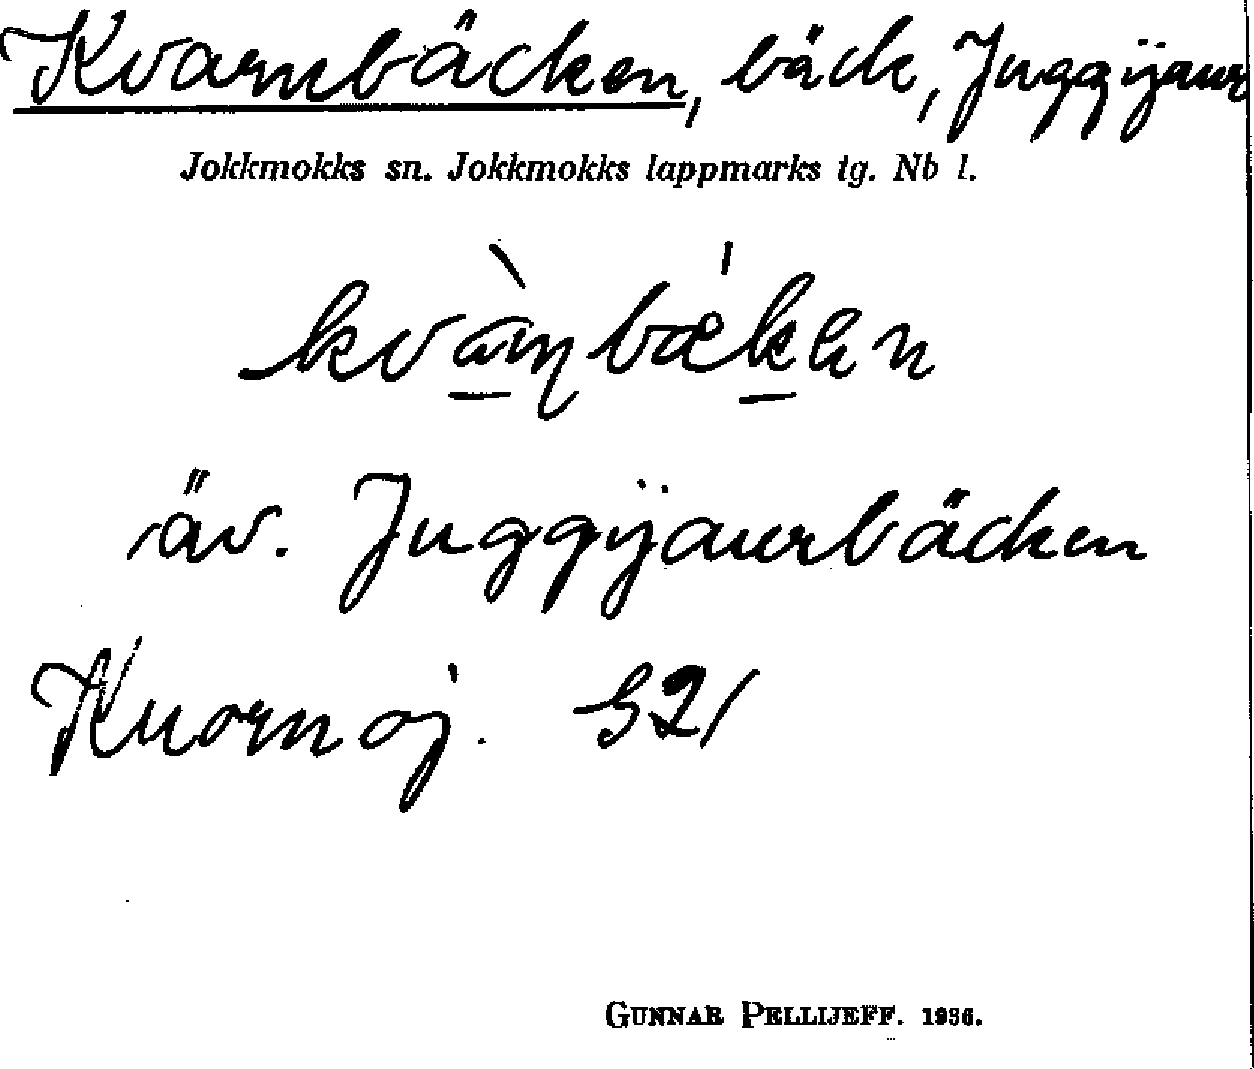 Kvarnbäcken, bäck, Juggijaur
Jokkmokks sn. Jokkmokks lappmarks tg. Nb l.
kvàɳbǽken
äv. Juggijaurbäcken
Kuornoj. 521
GUNNAR PELLIJEFF. 1936.